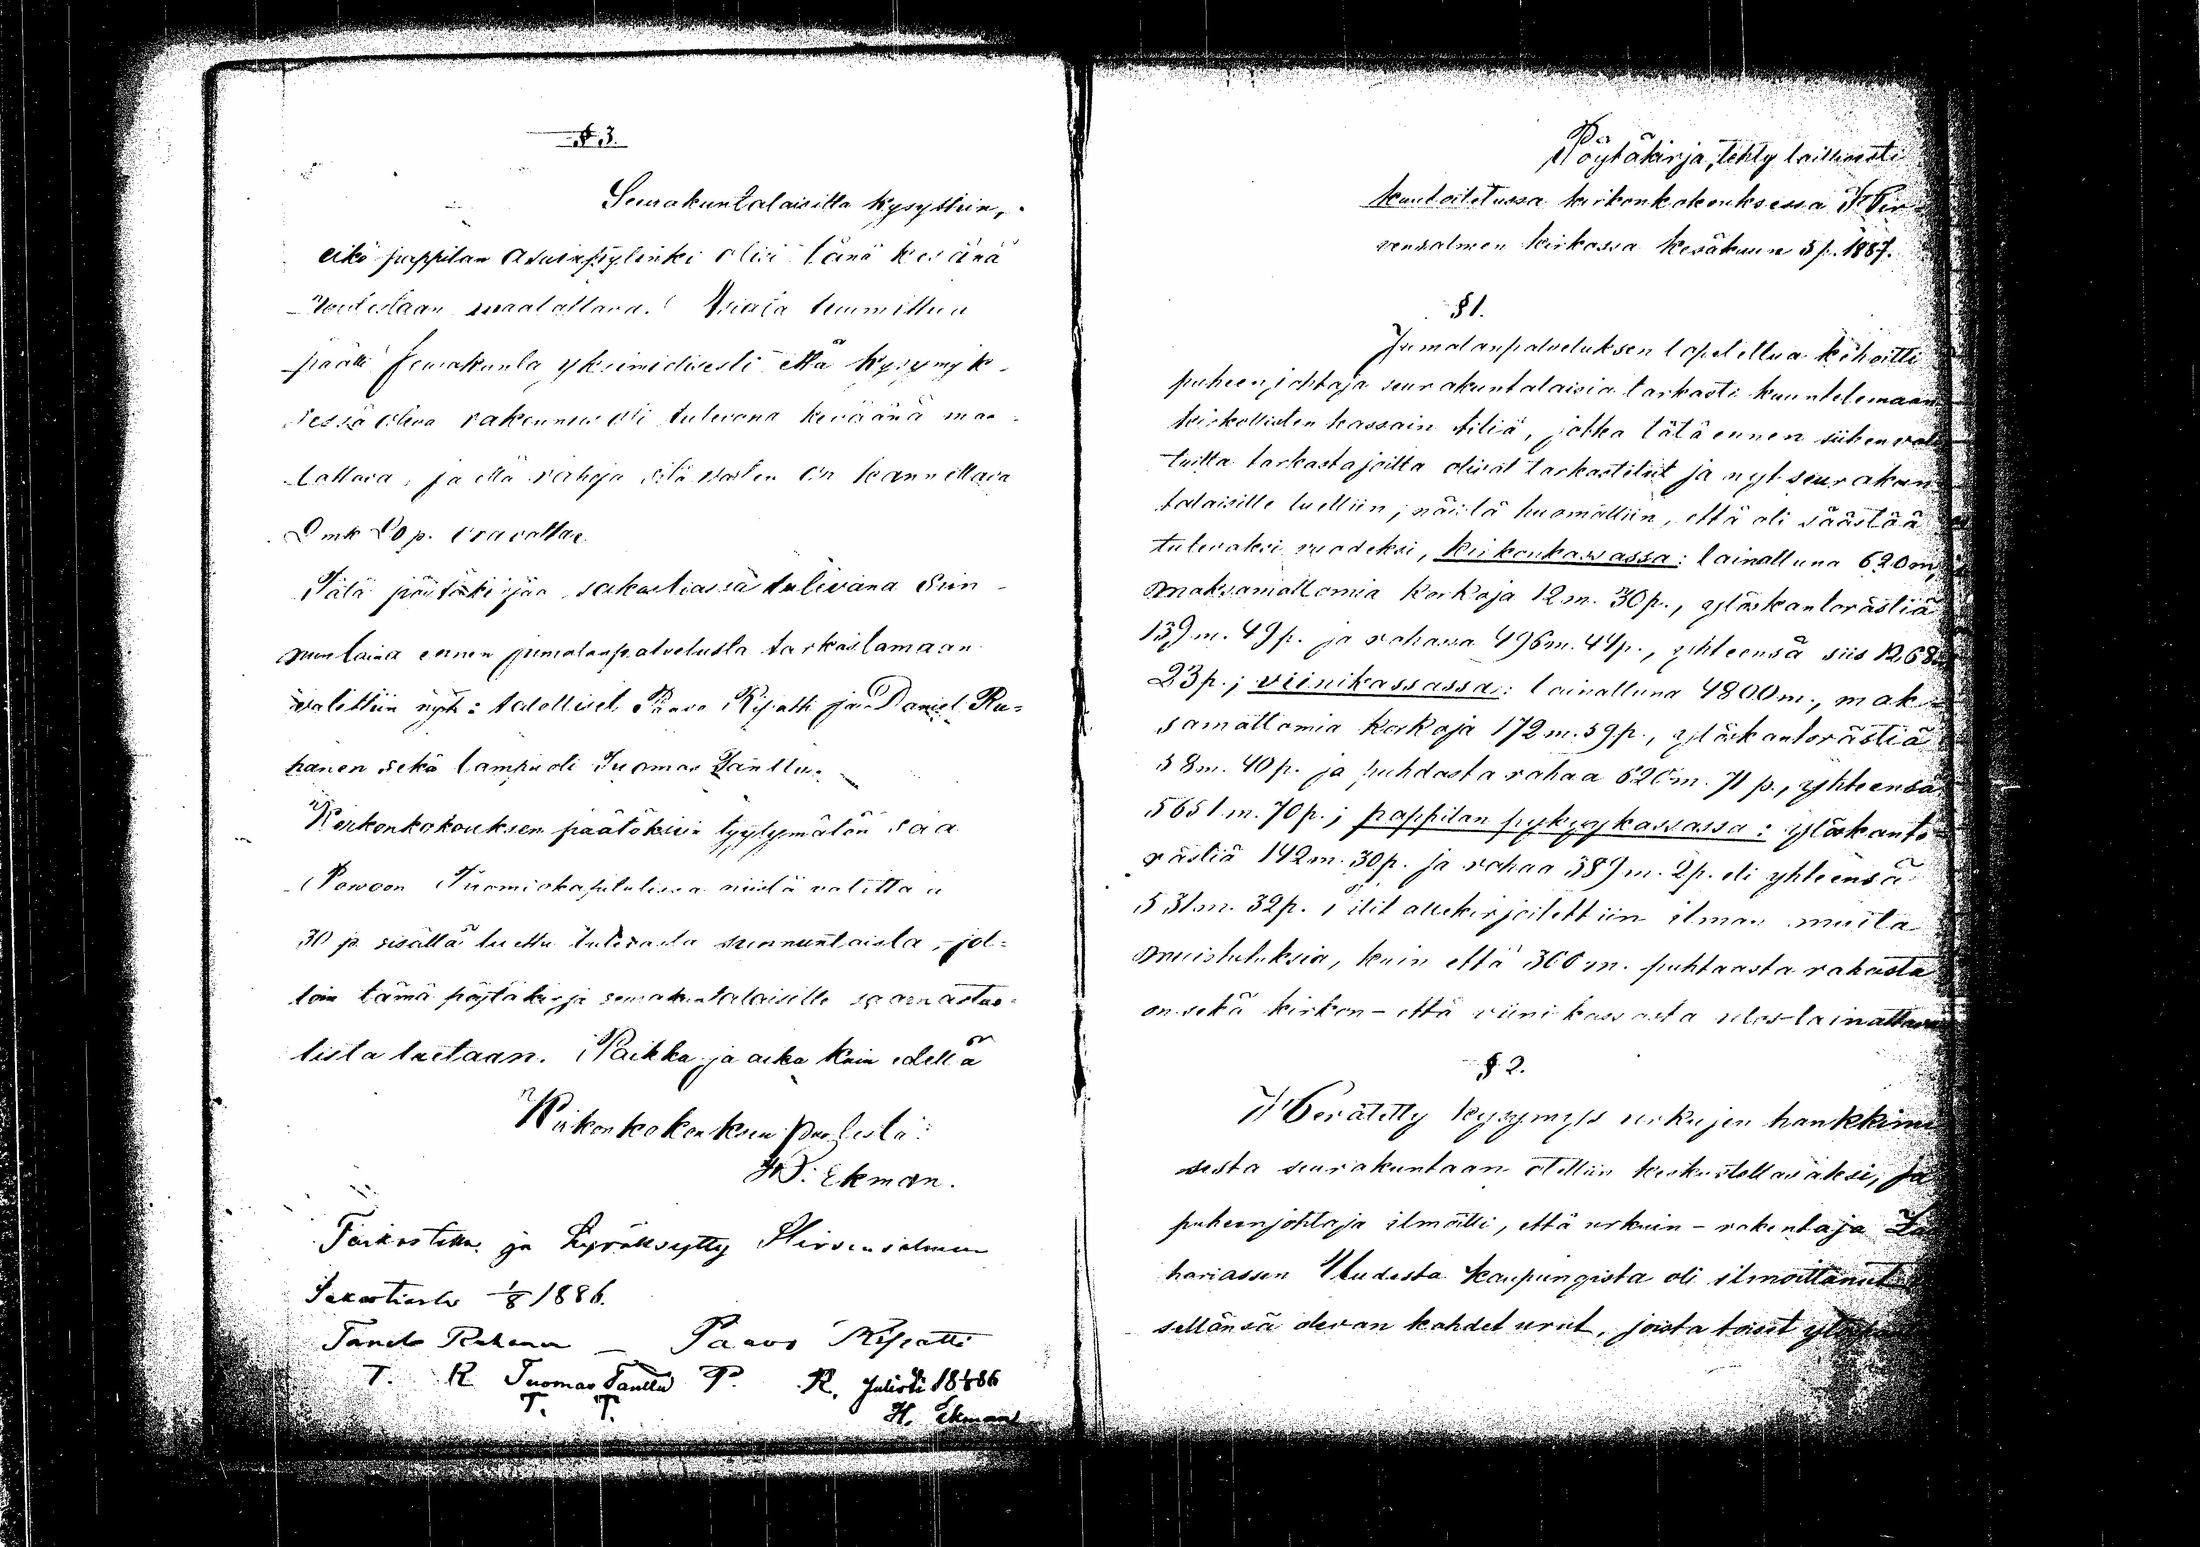 § 3.
Seurakuntalaisilta kysyttiin,
eikö pappilan asuinpytinki olisi tänä kesänä
uudestaan maalattava. Asiata tuumittua
päätti Seurakunta yksimielisesti että kysymyk-
sessä oleva rakennus oli tulevana keväänä maa-
lattava, ja että rahoja sitä varten on kannettava
mk 20 p.
Tätä pöytäkirjaa sakastiassa tulevana sun-
nuntaina ennen jumalanpalvelusta tarkastamaan
valittiin nyt: talolliset Paavo Ripatti ja Daniel Ru-
hanen sekä lampuoti Tuomas Tanttu.
Kirkonkokouksen päätöksiin tyytymätön saa
Porvoon Tuomiokapitulissa niistä valittaa
30 p. sisällä luettu tulevasta sunnuntaista, jol-
loin tämä pöytäkirja seurakuntalaisille saarnastuo-
lista luetaan. Paikka ja aika kuin edellä
Kirkonkokouksen puolesta:
H. Ekman.
Tarkastettu ja hyväksytty Hirvensalmen
Sakastiasta 1/8 1886.
Taneli Ruhanen – Paavo Ripatti
T. R. Tuomas Tanttu P. R. Julisti 18 1/8 86
T. T. H. Ekman
Pöytäkirja, tehty laillisesti
kuuloitetussa kirkonkokouksessa Hir-
vensalmen kirkossa kesäkuun 5 p. 1887.
§ 1.
Jumalanpalveluksen lopetettua kehoitti
puheenjohtaja seurakuntalaisia tarkasti kuuntelemaan
kirkollisten kassain tiliä, jotka tätä ennen siihen vali
tuilta tarkastajoilta olivat tarkastetut ja nyt seurakun
talaisille luettiin; näistä huomattiin, että oli säästää
tulevaksi vuodeksi, kirkonkassassa: lainattuna 620 m,
maksamattomia korkoja 12 m. 30 p., ylöskantorästiä
139 m. 49 p. ja rahassa 496 m. 44 p., yhteensä siis 1268
23 p.; viinikassassa: lainattuna 4800 m., mak
samattomia korkoja 172 m. 59 p., ylöskantorästiä
58 m. 40 p. ja puhdasta rahaa 620 m. 71 p., yhteensä
5651 m. 70 p.; pappilan pykyykassassa: ylöskanto
rästiä 142 m. 30 p. ja rahaa 389 m. 2 p. eli yhteensä
531 m. 32 p. Tilit allekirjoitettiin ilman muita
muistutuksia, kuin että 300 m. puhtaasta rahasta
on sekä kirkon- että viinikassasta ulos-lainattava
§ 2.
Herätetty kysymys urkujen hankkimi
sesta seurakuntaan otettiin keskusteltavaksi, ja
puheenjohtaja ilmoitti, että urkuin-rakentaja Za
hariassen Uudesta kaupungista oli ilmoittanut
sellänsä olevan kahdet urut, joista toiset